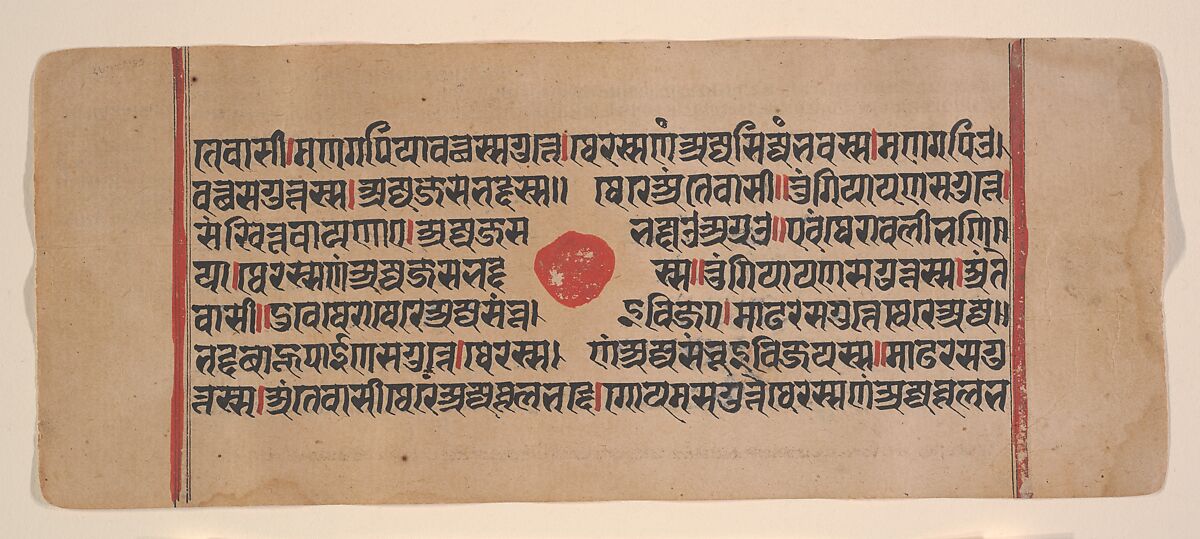 तेवासी।मणगपिया वच्छसगुत्ते।थेरस्स णं अज्जसिज्जंभवस्स।मणगपिउ।
वच्छसगुत्तस्स।अज्जजसभद्दस्स॥ थेरे अंतेवासी॥तुंगियायणसगुत्ते।
संखित्तवायणाए।अज्जजस भद्दाउ अग्गउ॥एवं थेरावली भणि
या।थेरस्स णं अज्जजसभद्द स्स॥तुंगियायणसगुत्तस्स।अंते
वासी॥दुवे थेरा थेरे अज्जसंभू। इविजए।माढरसगुत्ते थेरे अज्ज॥
भद्दबाहू पाईणसगुत्ते।थेरस्स। णं अज्जसंभूइविजयस्स॥माढरसगु
त्तस्स।अंतेवासी थेरे अज्जथूलभद्दे।गोयमसगुत्ते थेरस्स णं अज्जथूलभ